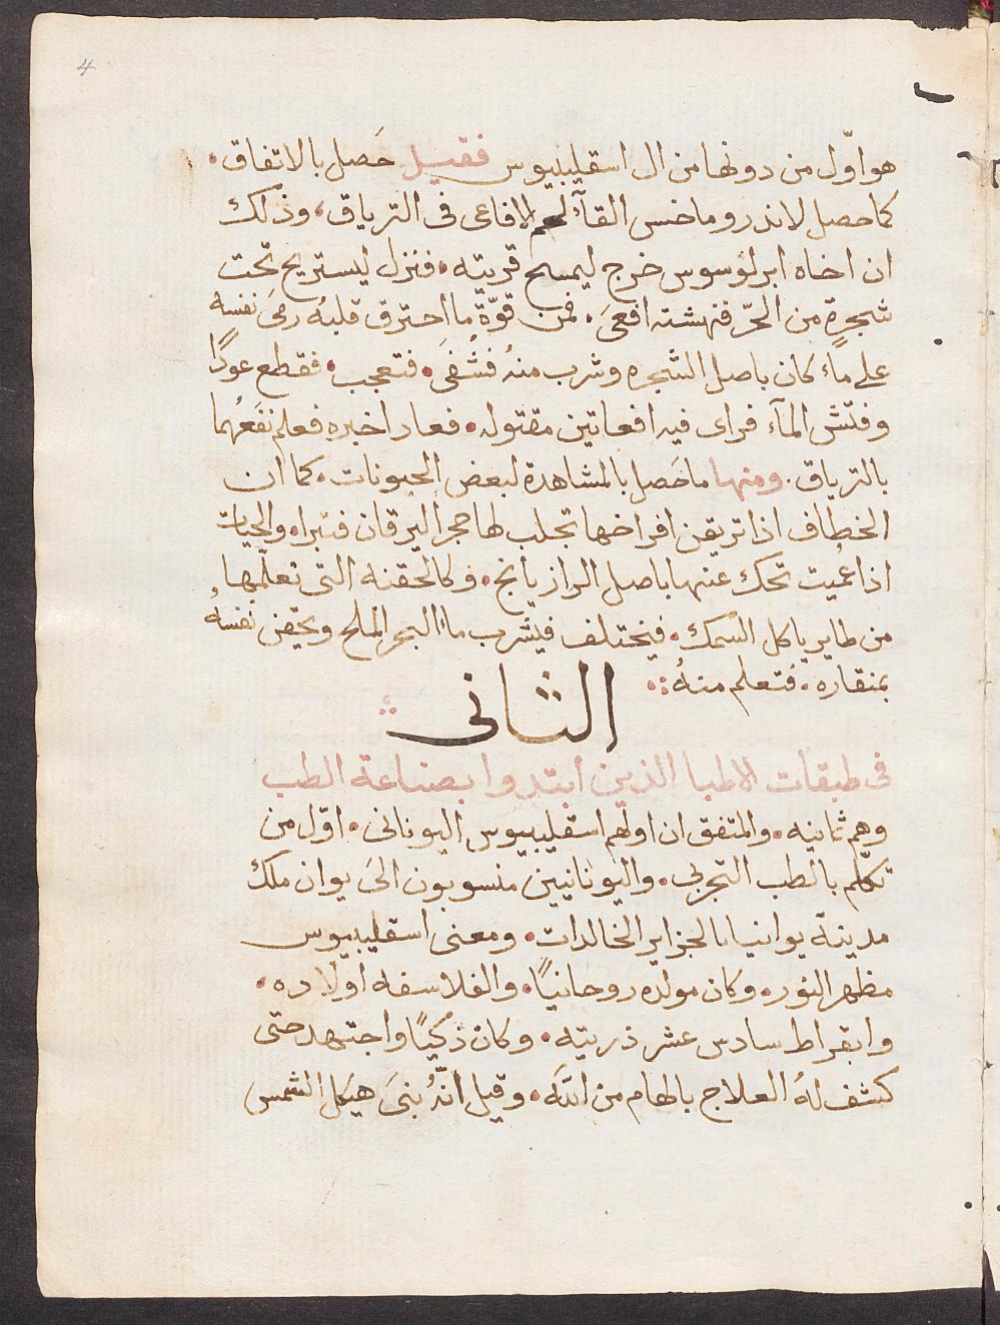 4
هو اوّل من دونها من ال اسقليبيوس فقيل حَصل بالاتفاق.
كما حصل لاندروماخس القآئه لحم الافاعى فى الترياق، وذلك
ان اخاه ابرلوسوس خرج ليمسح قريته. فنزل ليستريح تحت
شجرةٍ من الحرّ فنهشته افعىَ. فمن قوّة ما احترق قلبهُ رمىَ نفسه
على ماءٍ كان باصل الشجره وشرب منهُ فشُفىَ. فتعجب. فقطع عودًا
وفتش المآء فراى فيه افعاتين مقتوله. فعاد اخبره فعلم نفعهما
بالترياق. ومنها ما حَصل بالمشاهدة لبعض الحيونات. كما ان
الخطاف اذا تريقن افراخها تجلب لها حجر اليرقان فتبرا. والحيات
اذا عُميت تحك عنها باصل الرازيانج. وكالحقنه التى تعلّمها
من طاير ياكل السّمك. فيختلف فيشرب ماء البحر الملح ويحقن نفسهُ
بمنقاره. فتعلم منهُ
الثانى
فى طبقات الاطبا الذين ابتدوا بصناعة الطب
وهم ثمانيه. والمتفق ان اولهم اسقليبيوس اليونانى. اوّل من
تكلّم بالطب التجربى. واليونانيين منسوبون الىَ يوان ملك
مدينة يوانيا بالجزاير الخالدات. ومعنى اسقليبيوس
مظهر النور. وكان مولده روحانيًّا. والفلاسفه اولاده.
وابقراط سادس عشر ذريته. وكان ذكيًا واجتهد حتى
كشف لهُ العلاج بالهام من اللّه. وقيل انّهُ بنىَ هيكل الشمس